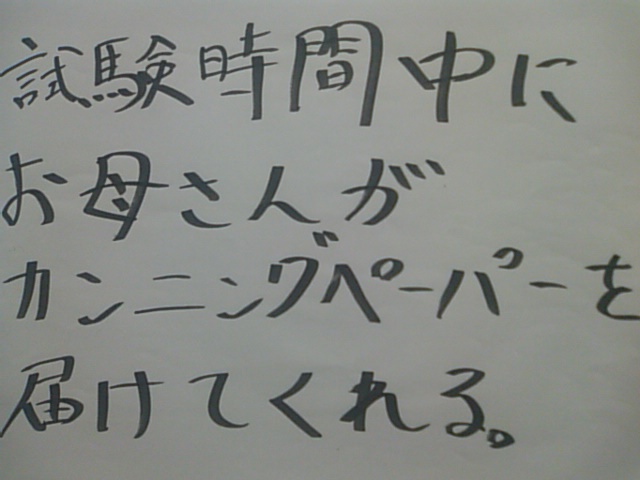 試験時間中に
お母さんが
カンニングペーパーを
届けてくれる。